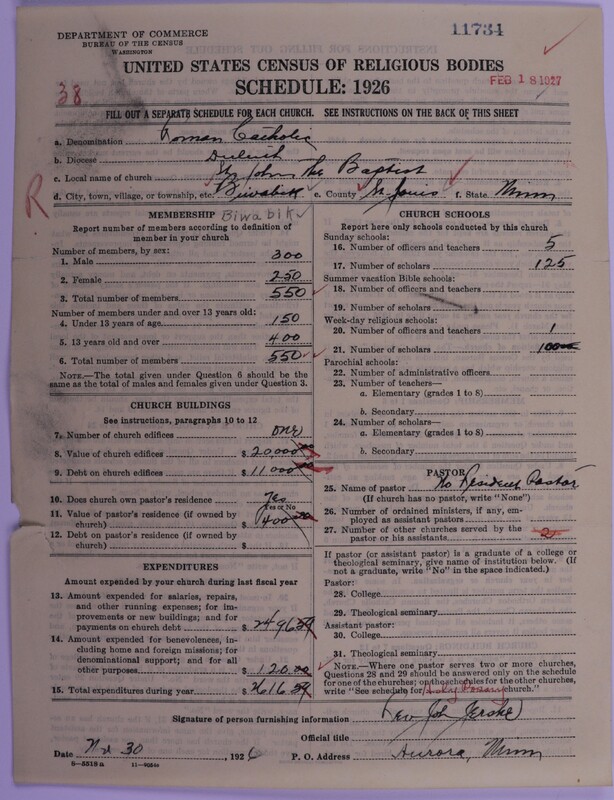 DEPARTMENT OF COMMERCE
BUREAU OF THE CENSUS
WASHINGTON
11734
UNITED STATES CENSUS OF RELIGIOUS BODIES
SCHEDULE: 1926
FEB 18 1927
38
FILL OUT A SEPARATE SCHEDULE FOR EACH CHURCH. SEE INSTRUCTIONS ON THE BACK OF THIS SHEET
a. Denomination Roman Catholic
b. Diocese Duluth
c. Local name of church St. John The Baptist
d. City, town, village, or township, etc. Biwabik e. County St. Louis f. State Minn
R
MEMBERSHIP Biwabik
Report number of members according to definition of
member in your church
Number of members, by sex:
1. Male 300
2. Female 250
3. Total number of members 550
Number of members under and over 13 years old:
4. Under 13 years of age 150
5. 13 years old and over 400
6. Total number of members 550
NOTE.—The total given under Question 6 should be
the same as the total of males and females given under Question 3.
CHURCH BUILDINGS
See instructions, paragraphs 10 to 12
7. Number of church edifices one
8. Value of church edifices $20,000
9. Debt on church edifices $11,000
10. Does church own pastor's residence Yes
Yes or No
11. Value of pastor's residence (if owned by
church) $400
12. Debt on pastor's residence (if owned by
church) $
EXPENDITURES
Amount expended by your church during last fiscal year
13. Amount expended for salaries, repairs,
and other running expenses; for im-
provements or new buildings; and for
payments on church debt $2496
14. Amount expended for benevolences,
including home and foreign missions; for
denominational support; and for all
other purposes $120.00
15. Total expenditures during year $2616
CHURCH SCHOOLS
Report here only schools conducted by this church
Sunday schools:
16. Number of officers and teachers 5
17. Number of scholars 125
Summer vacation Bible schools:
18. Number of officers and teachers
19. Number of scholars
Week-day religious schools:
20. Number of officers and teachers 1
21. Number of scholars
Parochial schools:
22. Number of administrative officers
23. Number of teachers—
a. Elementary (grades 1 to 8)
b. Secondary
24. Number of scholars—
a. Elementary (grades 1 to 8)
b. Secondary
PASTOR
25. Name of pastor No Resident Pastor
(If church has no pastor, write "None")
26. Number of ordained ministers, if any, em-
ployed as assistant pastors
27. Number of other churches served by the
pastor or his assistants 2
If pastor (or assistant pastor) is a graduate of a college or
theological seminary, give name of institution below. (If
not a graduate, write "No" in the space indicated.)
Pastor:
28. College
29. Theological seminary
Assistant pastor:
30. College
31. Theological seminary
NOTE.—Where one pastor serves two or more churches,
Questions 28 and 29 should be answered only on the schedule
for one of the churches; on the schedules for the other churches,
write "See schedule for Holy Rosary church."
Signature of person furnishing information Rev John Jershe
Official title
Date Nov 30 , 1926 P. O. Address Aurora, Minn
8—5518 a